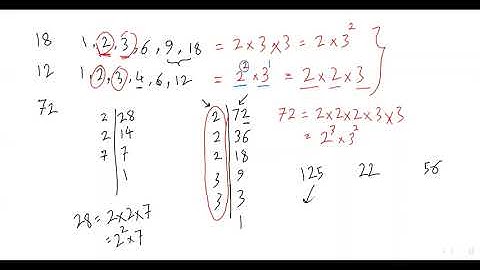 18 1, 2, 3, 6, 9, 18 = 2 × 3 × 3 = 2 × 3²
12 1, 2, 3, 4, 6, 12 = 2² × 3¹ = 2 × 2 × 3
72
2 | 28
2 | 14
7 | 7
1
28 = 2 × 2 × 7
= 2² × 7
2 | 72
2 | 36
2 | 18
3 | 9
3 | 3
1
72 = 2 × 2 × 2 × 3 × 3
= 2³ × 3²
125 22 56